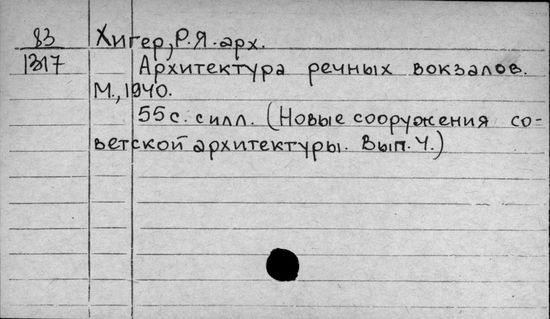 83 Хигер, Р.Я. арх.
1317 Архитектура речных вокзалов.
М., 1940.
55 с. с илл. (Новые сооружения со-
ветской архитектуры. Вып. 4.)